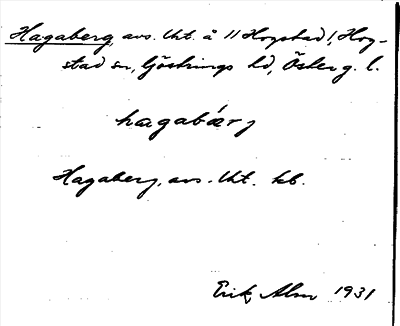 Hagaberg, avs. lht. å 11 Hogstad 1, Hog-
stad sn, Göstrings hd, Österg. l.
hagabærj
Hagaberg, avs. lht. kb.
Erik Alm 1931